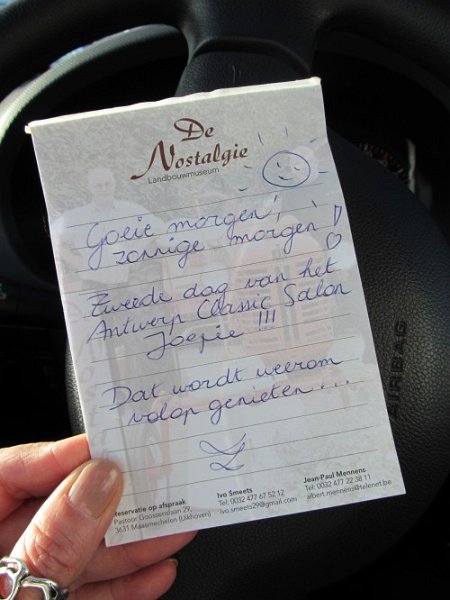 De
Nostalgie
Landbouwmuseum
Goeie morgen!,
zonnige morgen!
Zweede dag van het
Antwerp Classic Salon
Joepie !!!
Dat wordt weerom
volop genieten...
Reservatie op afspraak
Pastoor Goossenslaan 29,
3631 Maasmechelen (Uikhoven)
Ivo Smeets
Tel: 0032 477 67 52 12
ivo.smeets29@gmail.com
Jean-Paul Mennens
Tel: 0032 477 22 38 11
albert.mennens@telenet.be
AIRBAG